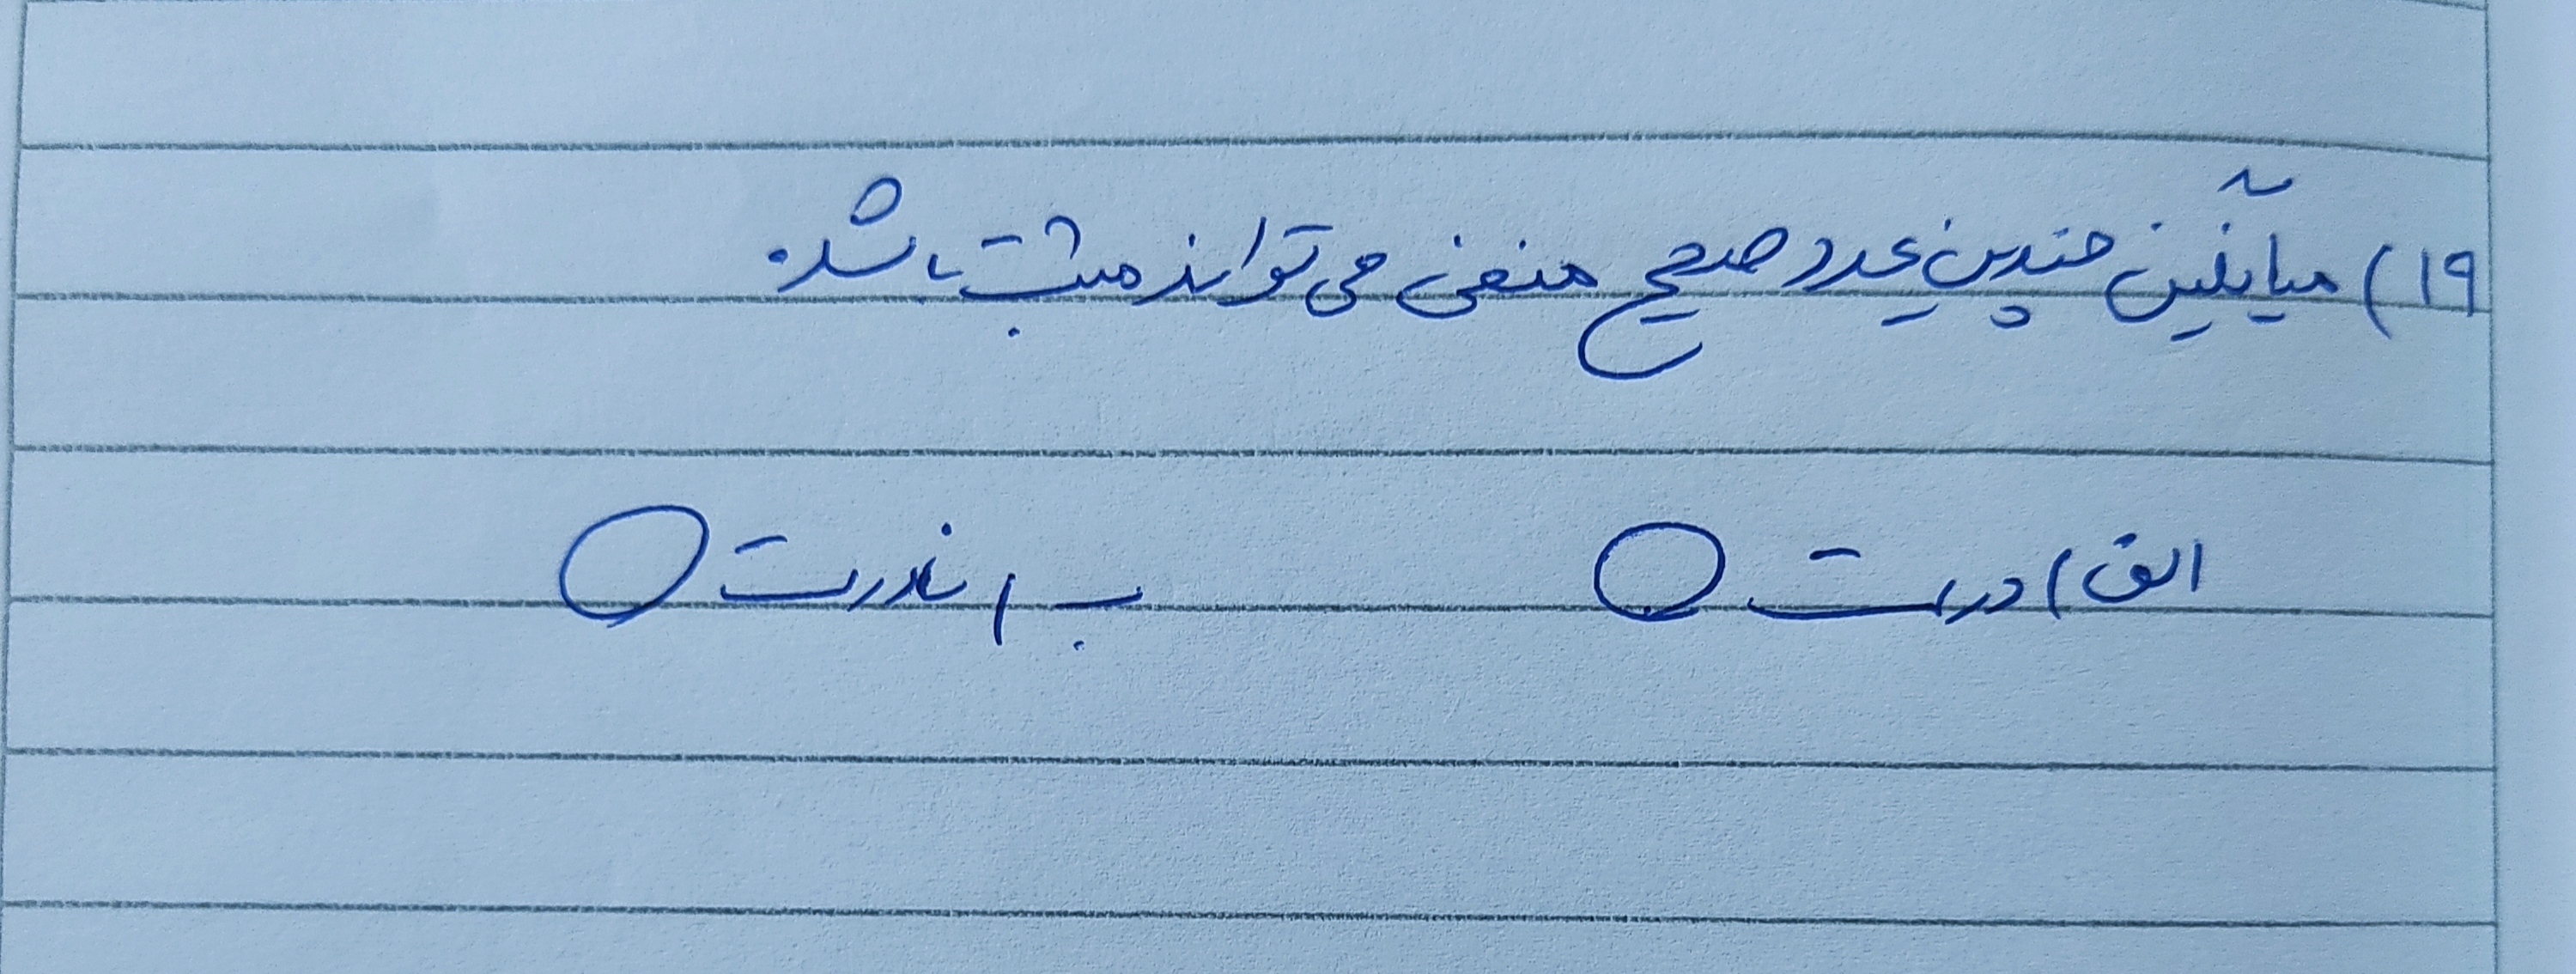 ۱۹) میانگین چندین عدد صحیح منفی می تواند مثبت باشد.
الف) درست ب) نادرست